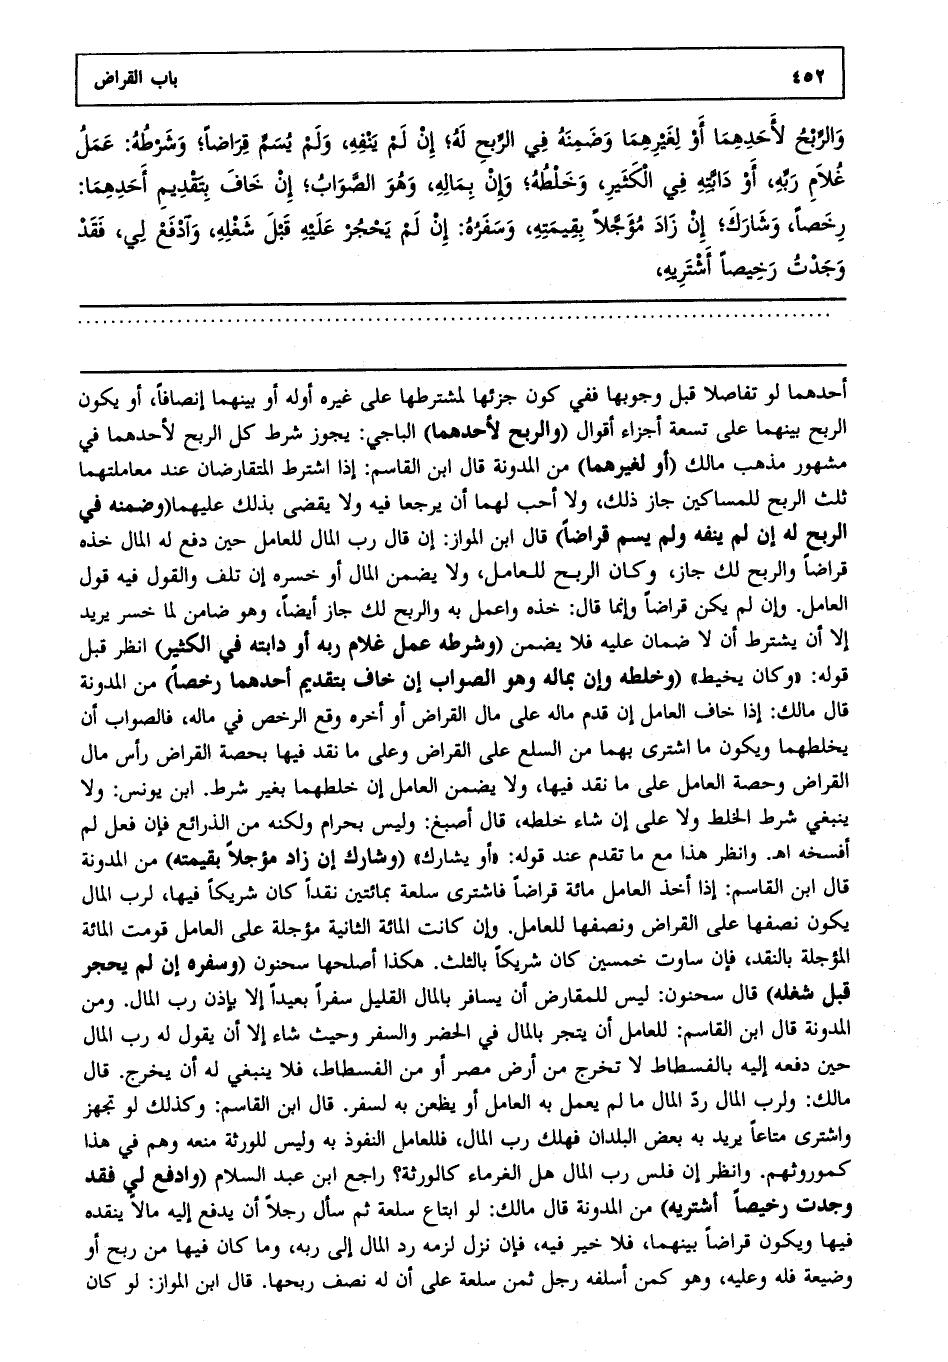 ٤٥٢
باب القراض
وَالرِّبْحُ لأَحَدِهِمَا أَوْ لِغَيْرِهِمَا وَضَمِنَهُ فِي الرِّبْحِ لَهُ؛ إِنْ لَمْ يَنْفِهِ، وَلَمْ يُسَمِّ قِرَاضاً؛ وَشَرْطُهُ: عَمَلُ
غُلاَمِ رَبِّهِ، أَوْ دَابَّتِهِ فِي الْكَثِيرِ، وَخَلْطُهُ؛ وَإِنْ بِمَالِهِ، وَهُوَ الصَّوَابُ؛ إِنْ خَافَ بِتَقْدِيمِ أَحَدِهِمَا:
رِخَصاً، وَشَارَكَ؛ إِنْ زَادَ مُؤَجَّلاً بِقِيمَتِهِ، وَسَفَرُهُ: إِنْ لَمْ يَحْجُرْ عَلَيْهِ قَبْلَ شَغْلِهِ، وَآدْفَعْ لِي، فَقَدْ
وَجَدْتُ رَخِيصاً أَشْتَرِيهِ،
أحدهما لو تفاصلا قبل وجوبها ففي كون جزئها لمشترطها على غيره أوله أو بينهما إنصافاً، أو يكون
الربح بينهما على تسعة أجزاء أقوال (والربح لأحدهما) الباجي: يجوز شرط كل الربح لأحدهما في
مشهور مذهب مالك (أو لغيرهما) من المدونة قال ابن القاسم: إذا اشترط المتقارضان عند معاملتهما
ثلث الربح للمساكين جاز ذلك، ولا أحب لهما أن يرجعا فيه ولا يقضى بذلك عليهما(وضمنه في
الربح له إن لم ينفه ولم يسم قراضاً) قال ابن المواز: إن قال رب المال للعامل حين دفع له المال خذه
قراضاً والربح لك جاز، وكان الربح للعامل، ولا يضمن المال أو خسره إن تلف والقول فيه قول
العامل. وإن لم يكن قراضاً وإنما قال: خذه واعمل به والربح لك جاز أيضاً، وهو ضامن لما خسر يريد
إلا أن يشترط أن لا ضمان عليه فلا يضمن (وشرطه عمل غلام ربه أو دابته في الكثير) انظر قبل
قوله: «وكان يخيط» (وخلطه وإن بماله وهو الصواب إن خاف بتقديم أحدهما رخصاً) من المدونة
قال مالك: إذا خاف العامل إن قدم ماله على مال القراض أو أخره وقع الرخص في ماله، فالصواب أن
يخلطهما ويكون ما اشترى بهما من السلع على القراض وعلى ما نقد فيها بحصة القراض رأس مال
القراض وحصة العامل على ما نقد فيها، ولا يضمن العامل إن خلطهما بغير شرط. ابن يونس: ولا
ينبغي شرط الخلط ولا على إن شاء خلطه، قال أصبغ: وليس بحرام ولكنه من الذرائع فإن فعل لم
أفسخه اهـ. وانظر هذا مع ما تقدم عند قوله: «أو يشارك» (وشارك إن زاد مؤجلاً بقيمته) من المدونة
قال ابن القاسم: إذا أخذ العامل مائة قراضاً فاشترى سلعة بمائتين نقداً كان شريكاً فيها، لرب المال
يكون نصفها على القراض ونصفها للعامل. وإن كانت المائة الثانية مؤجلة على العامل قومت المائة
المؤجلة بالنقد، فإن ساوت خمسين كان شريكاً بالثلث. هكذا أصلحها سحنون (وسفره إن لم يحجر
قبل شغله) قال سحنون: ليس للمقارض أن يسافر بالمال القليل سفراً بعيداً إلا بإذن رب المال. ومن
المدونة قال ابن القاسم: للعامل أن يتجر بالمال في الحضر والسفر وحيث شاء إلا أن يقول له رب المال
حين دفعه إليه بالفسطاط لا تخرج من أرض مصر أو من الفسطاط، فلا ينبغي له أن يخرج. قال
مالك: ولرب المال ردّ المال ما لم يعمل به العامل أو يظعن به لسفر. قال ابن القاسم: وكذلك لو تجهز
واشترى متاعاً يريد به بعض البلدان فهلك رب المال، فللعامل النفوذ به وليس للورثة منعه وهم في هذا
كموروثهم. وانظر إن فلس رب المال هل الغرماء كالورثة؟ راجع ابن عبد السلام (وادفع لي فقد
وجدت رخيصاً أشتريه) من المدونة قال مالك: لو ابتاع سلعة ثم سأل رجلاً أن يدفع إليه مالاً ينقده
فيها ويكون قراضاً بينهما، فلا خير فيه، فإن نزل لزمه رد المال إلى ربه، وما كان فيها من ربح أو
وضيعة فله وعليه، وهو كمن أسلفه رجل ثمن سلعة على أن له نصف ربحها. قال ابن المواز: لو كان